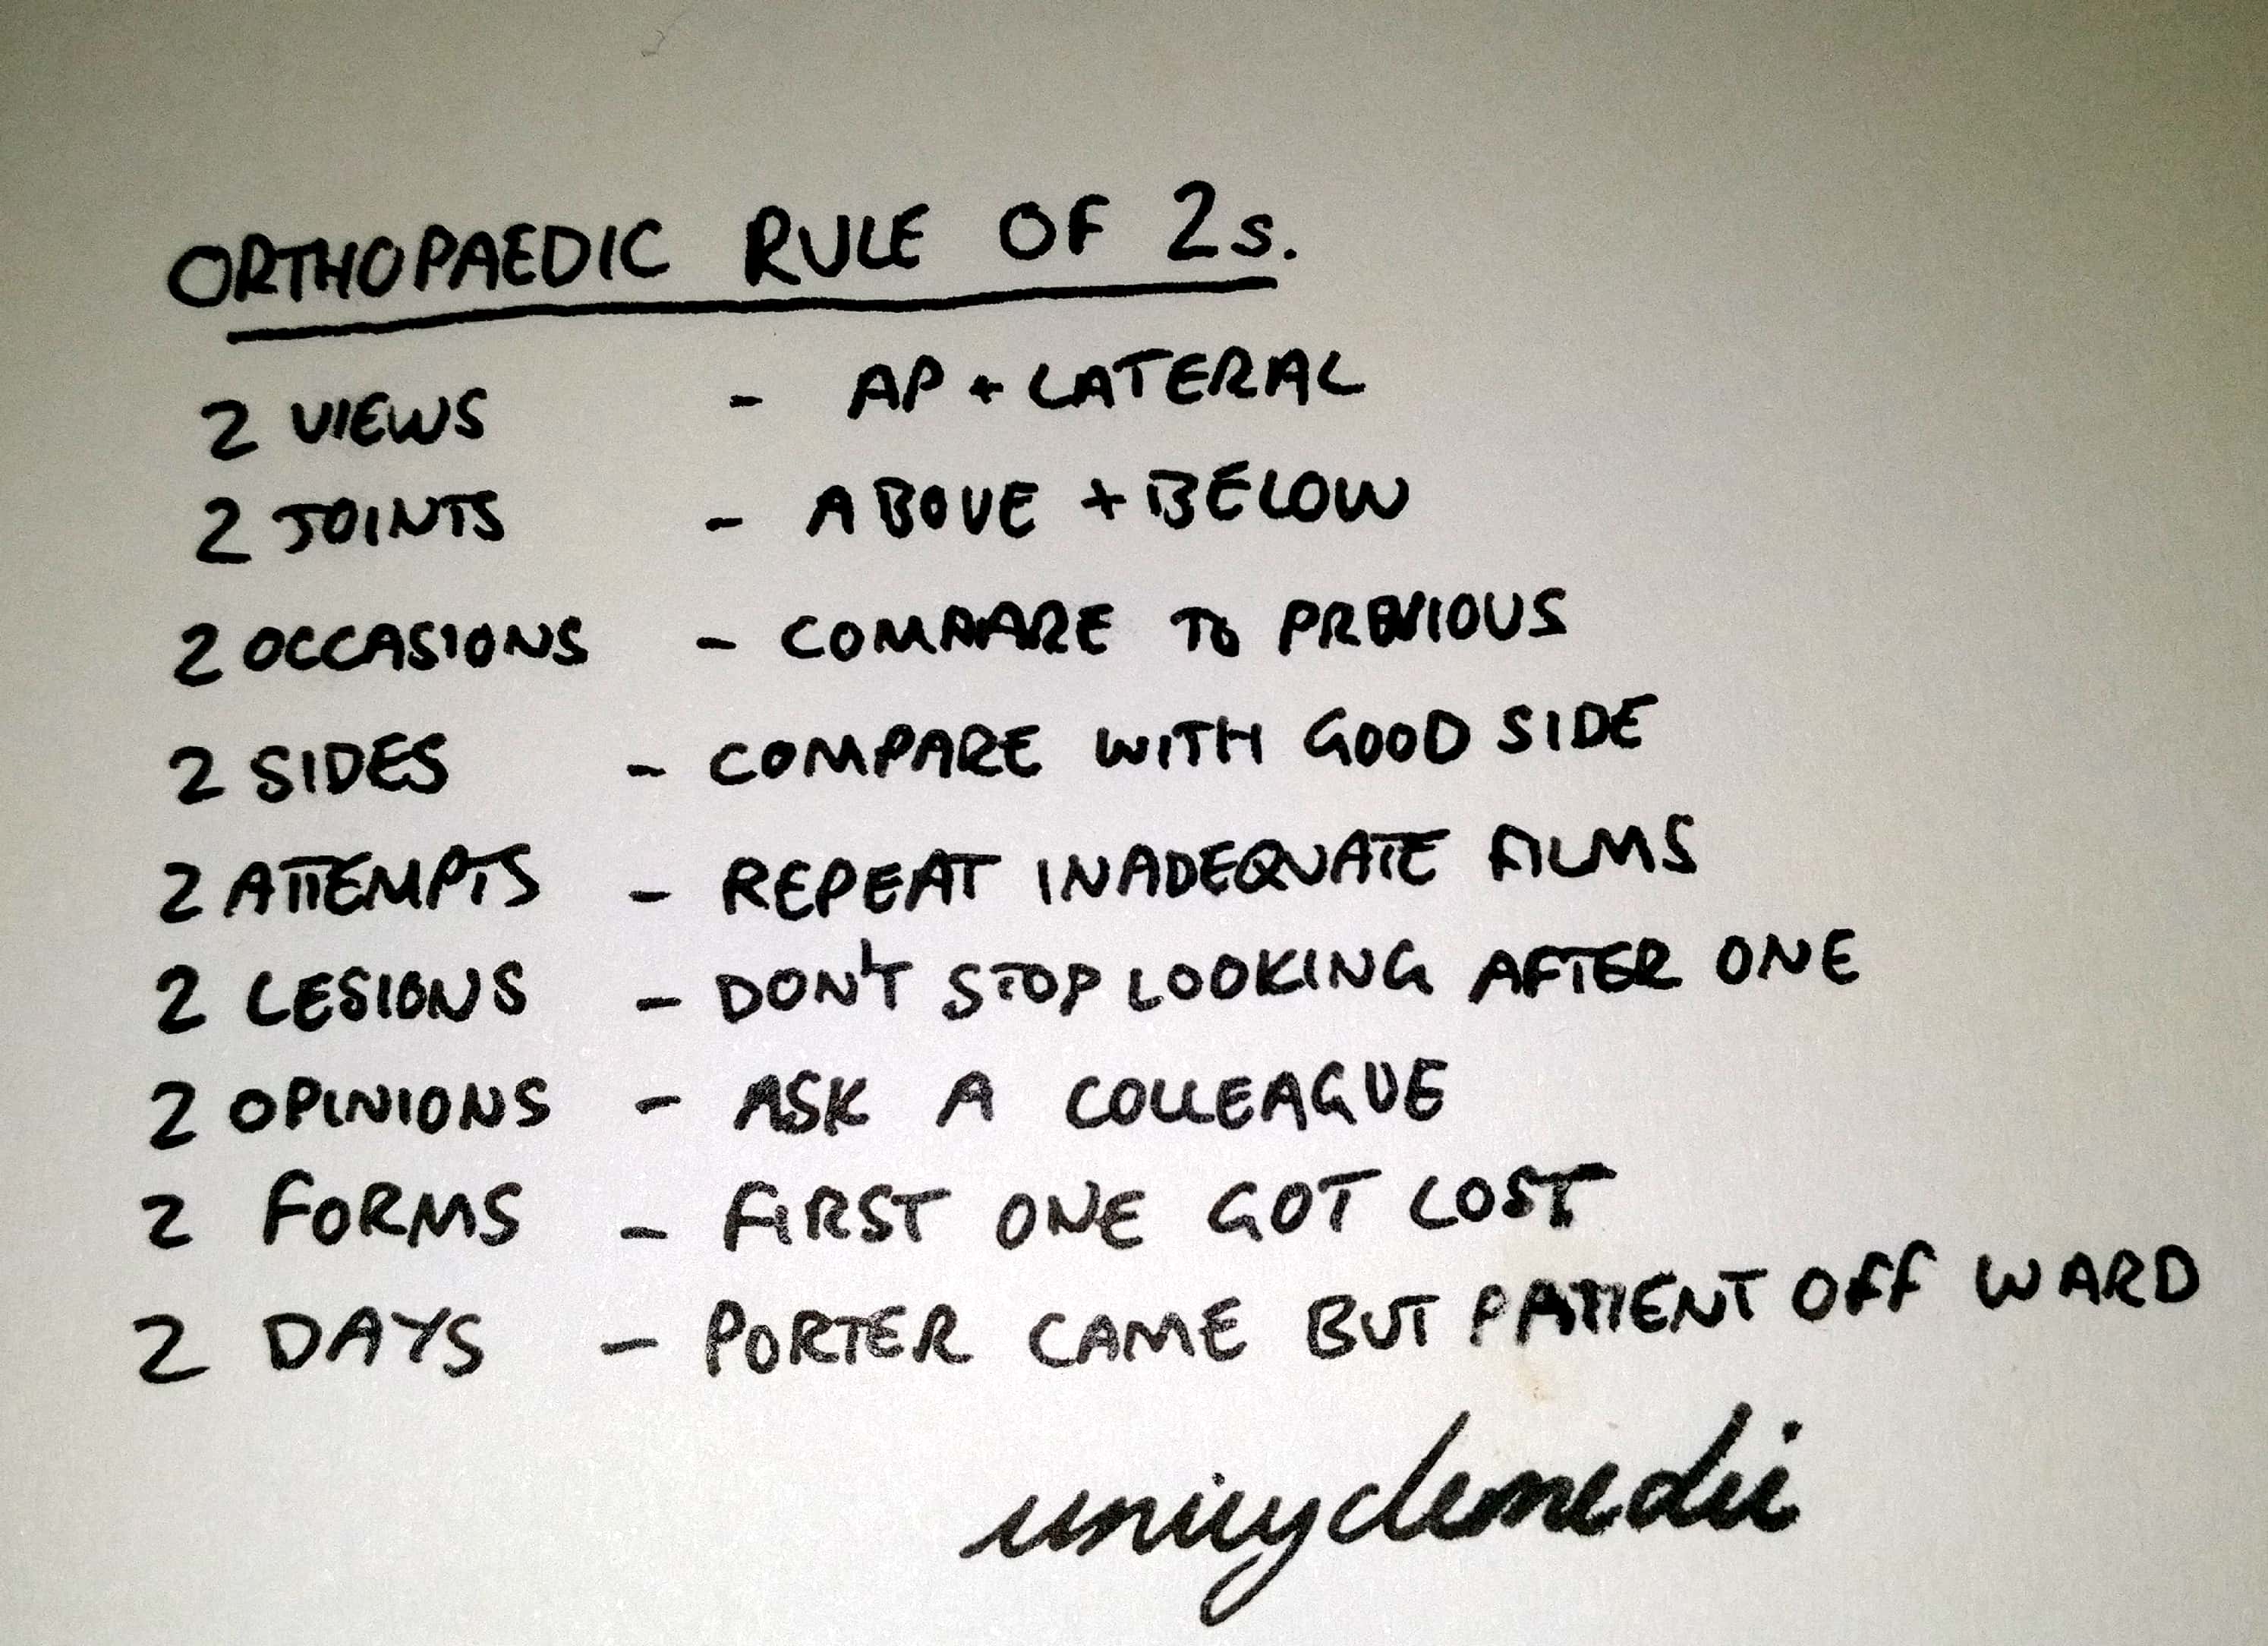 ORTHOPAEDIC RULE OF 2s.
2 VIEWS - AP + LATERAL
2 JOINTS - ABOVE + BELOW
2 OCCASIONS - COMPARE TO PREVIOUS
2 SIDES - COMPARE WITH GOOD SIDE
2 ATTEMPTS - REPEAT INADEQUATE FILMS
2 LESIONS - DON'T STOP LOOKING AFTER ONE
2 OPINIONS - ASK A COLLEAGUE
2 FORMS - FIRST ONE GOT LOST
2 DAYS - PORTER CAME BUT PATIENT OFF WARD
unicyclemedic